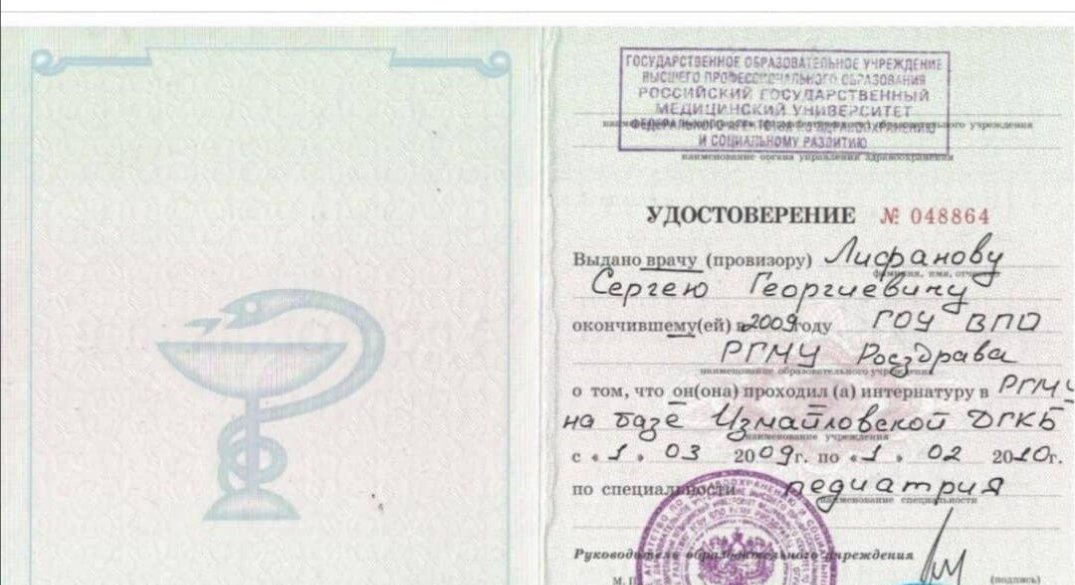 ГОСУДАРСТВЕННОЕ ОБРАЗОВАТЕЛЬНОЕ УЧРЕЖДЕНИЕ
ВЫСШЕГО ПРОФЕССИОНАЛЬНОГО ОБРАЗОВАНИЯ
РОССИЙСКИЙ ГОСУДАРСТВЕННЫЙ
МЕДИЦИНСКИЙ УНИВЕРСИТЕТ
ФЕДЕРАЛЬНОГО АГЕНТСТВА ПО ЗДРАВООХРАНЕНИЮ
образовательного учреждения
И СОЦИАЛЬНОМУ РАЗВИТИЮ
наименование органа управления здравоохранения
УДОСТОВЕРЕНИЕ № 048864
Выдано врачу (провизору) Лифанову
фамилия, имя, отчество
Сергею Георгиевичу
окончившему(ей) в 2009 году ГОУ ВПО
РГМУ Росздрава
наименование образовательного учреждения
о том, что он(она) проходил (а) интернатуру в РГМУ
на базе Измайловской ДГКБ
наименование учреждения
с «1» 03 2009г. по «1» 02 2010г.
по специальности педиатрия
наименование специальности
Руководитель образовательного учреждения
М. П.
(подпись)